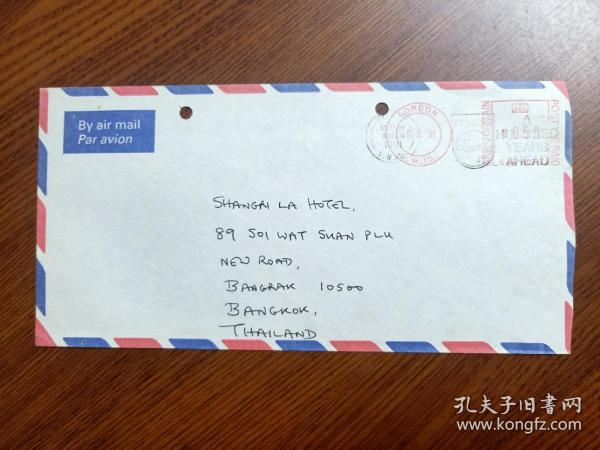 By air mail
Par avion
LONDON
S.W.1S.
GREAT BRITAIN
POST PAID
YEARS
AHEAD
SHANGRI LA HOTEL,
89 SOI WAT SUAN PLU
NEW ROAD,
BANGRAK 10500
BANGKOK,
THAILAND
孔夫子旧书网
www.kongfz.com